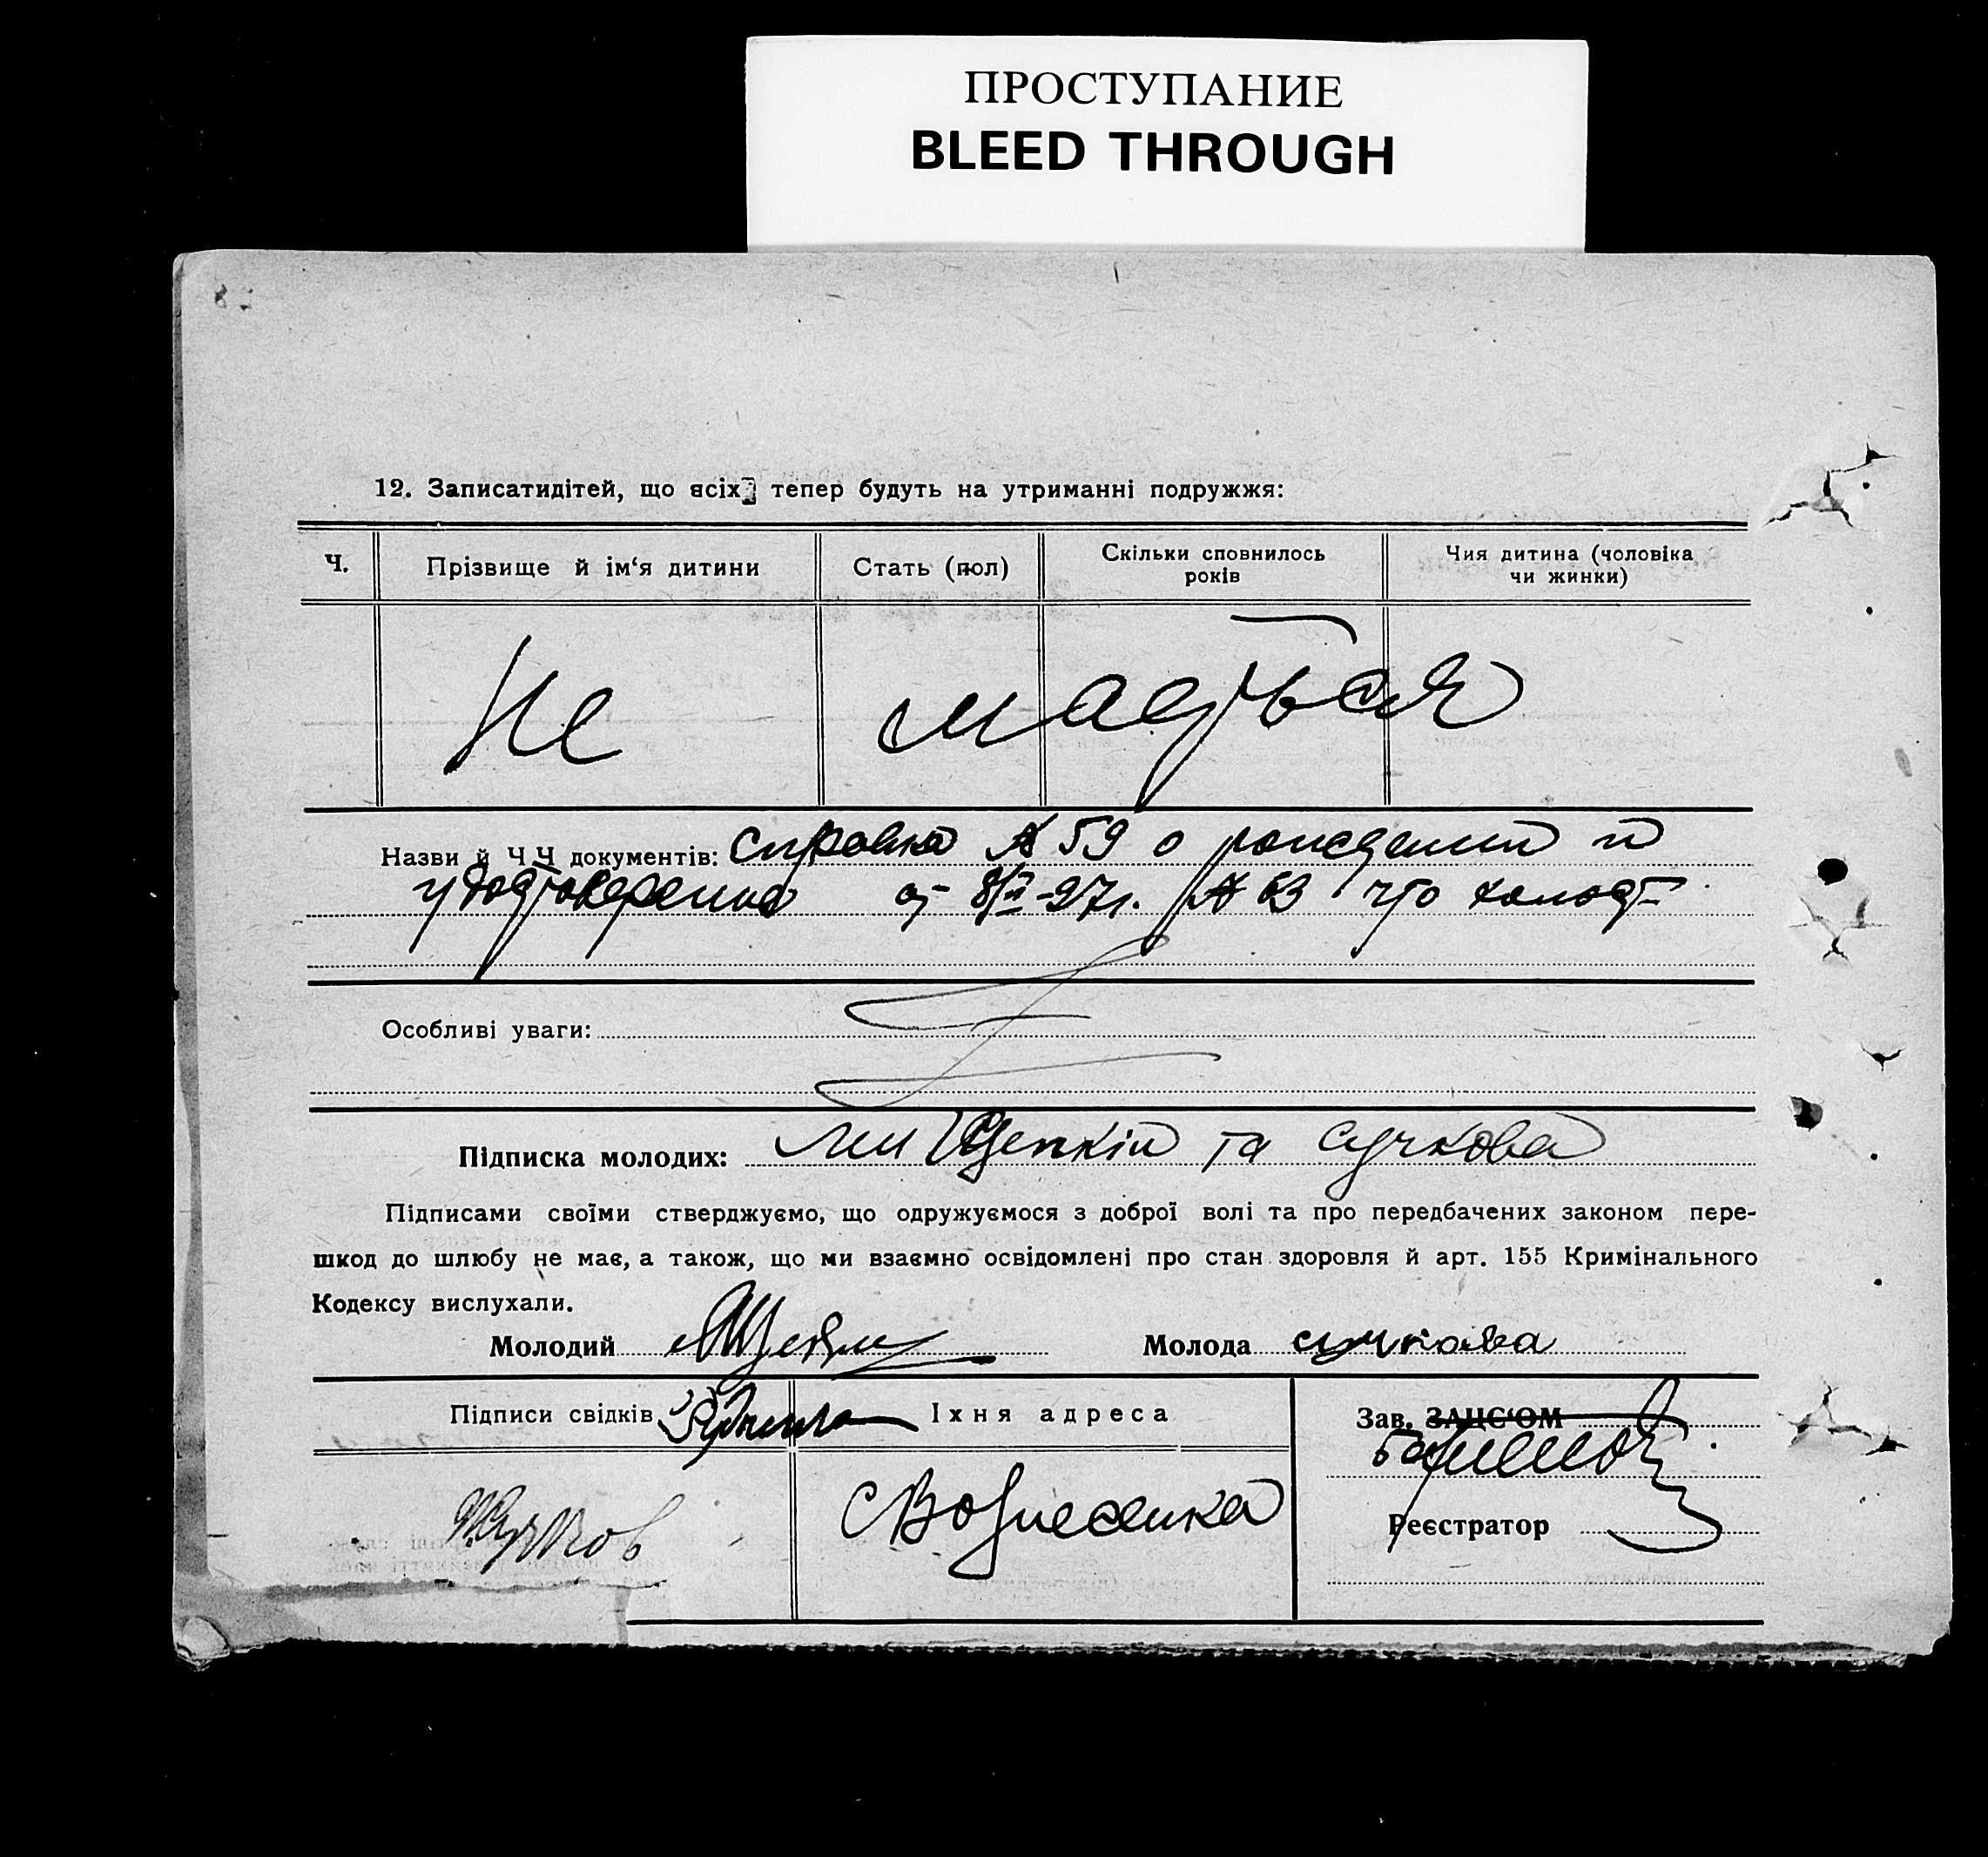 ПРОСТУПАНИЕ
BLEED THROUGH
12. Записатидітей, що всіх тепер будуть на утриманні подружжя:
Ч.
Прізвище й ім‘я дитини
Стать (пол)
Скільки сповнилось
років
Чия дитина (чоловіка
чи жинки)
Не мається
Назви й ЧЧ документів: Справка № 59 о рождении и
удостоверение от 8/ -27г. № 63 что холост
Особливі уваги:
Підписка молодих: Ми Щепкін та Сучкова
Підписами своїми стверджуємо, що одружуємося з доброї волі та про передбачених законом пере-
шкод до шлюбу не має, а також, що ми взаємно освідомлені про стан здоровля й арт. 155 Кримінального
Кодексу вислухали.
Молодий
Молода сучкова
Підписи свідків
Їхня адреса
Зав. ЗАЦС‘ОМ
с Вознесенка
Реєстратор